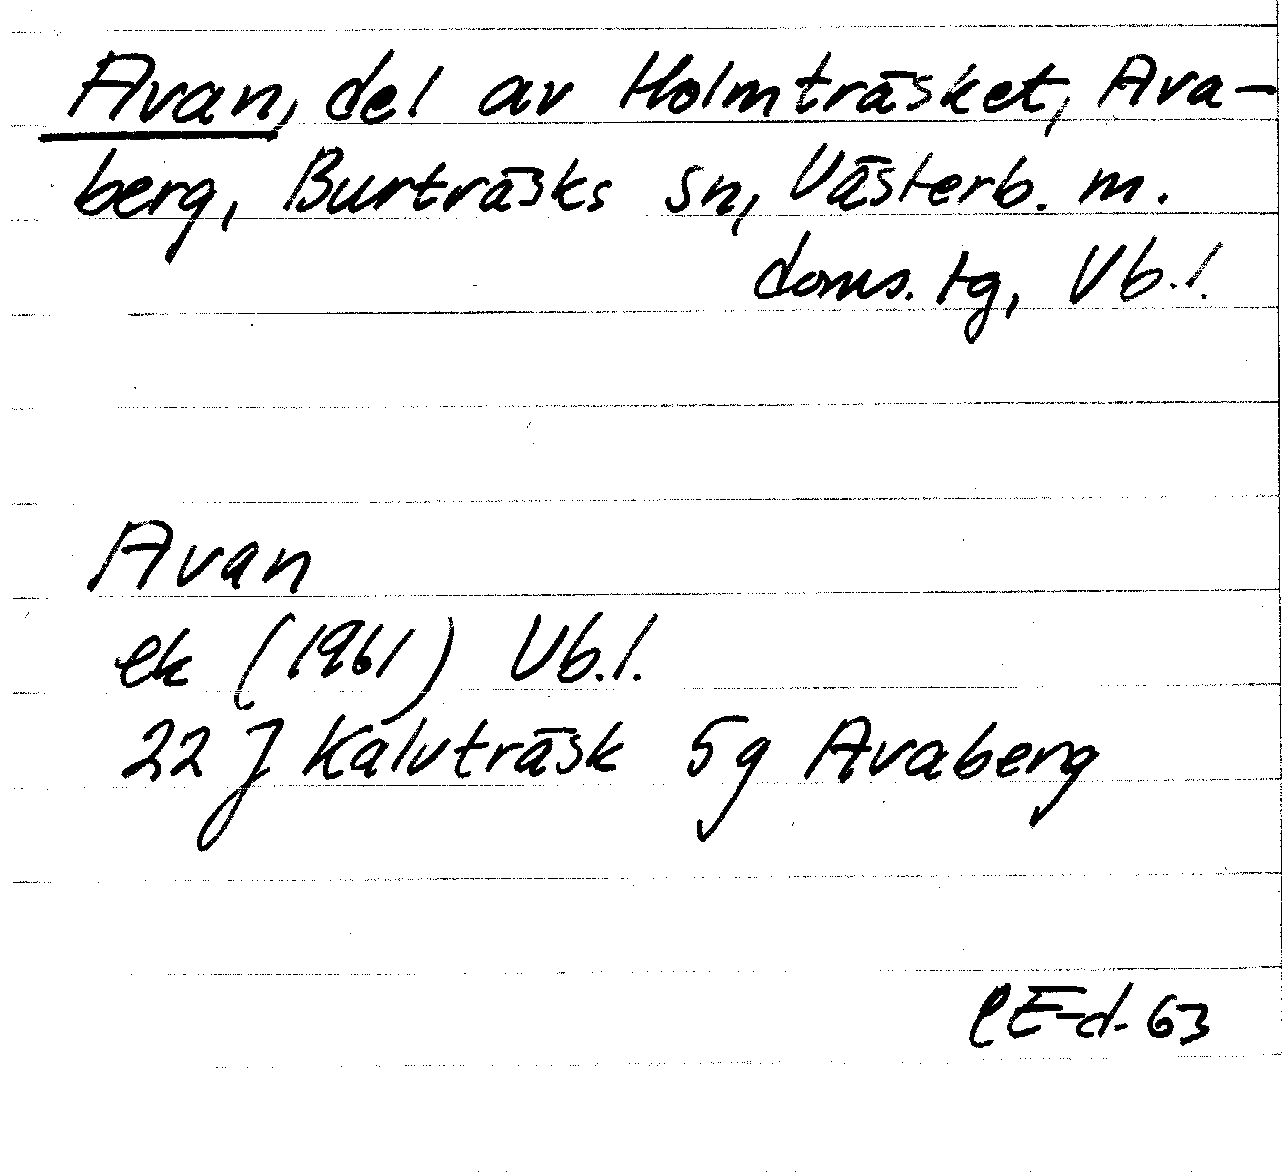 Avan, del av Holmträsket, Ava-
berg, Burträsks sn, Västerb. m.
doms. tg, Vb.l.
Avan
ek (1961) Vb.l.
22 J Kalvträsk 5g Avaberg
E-d. 63